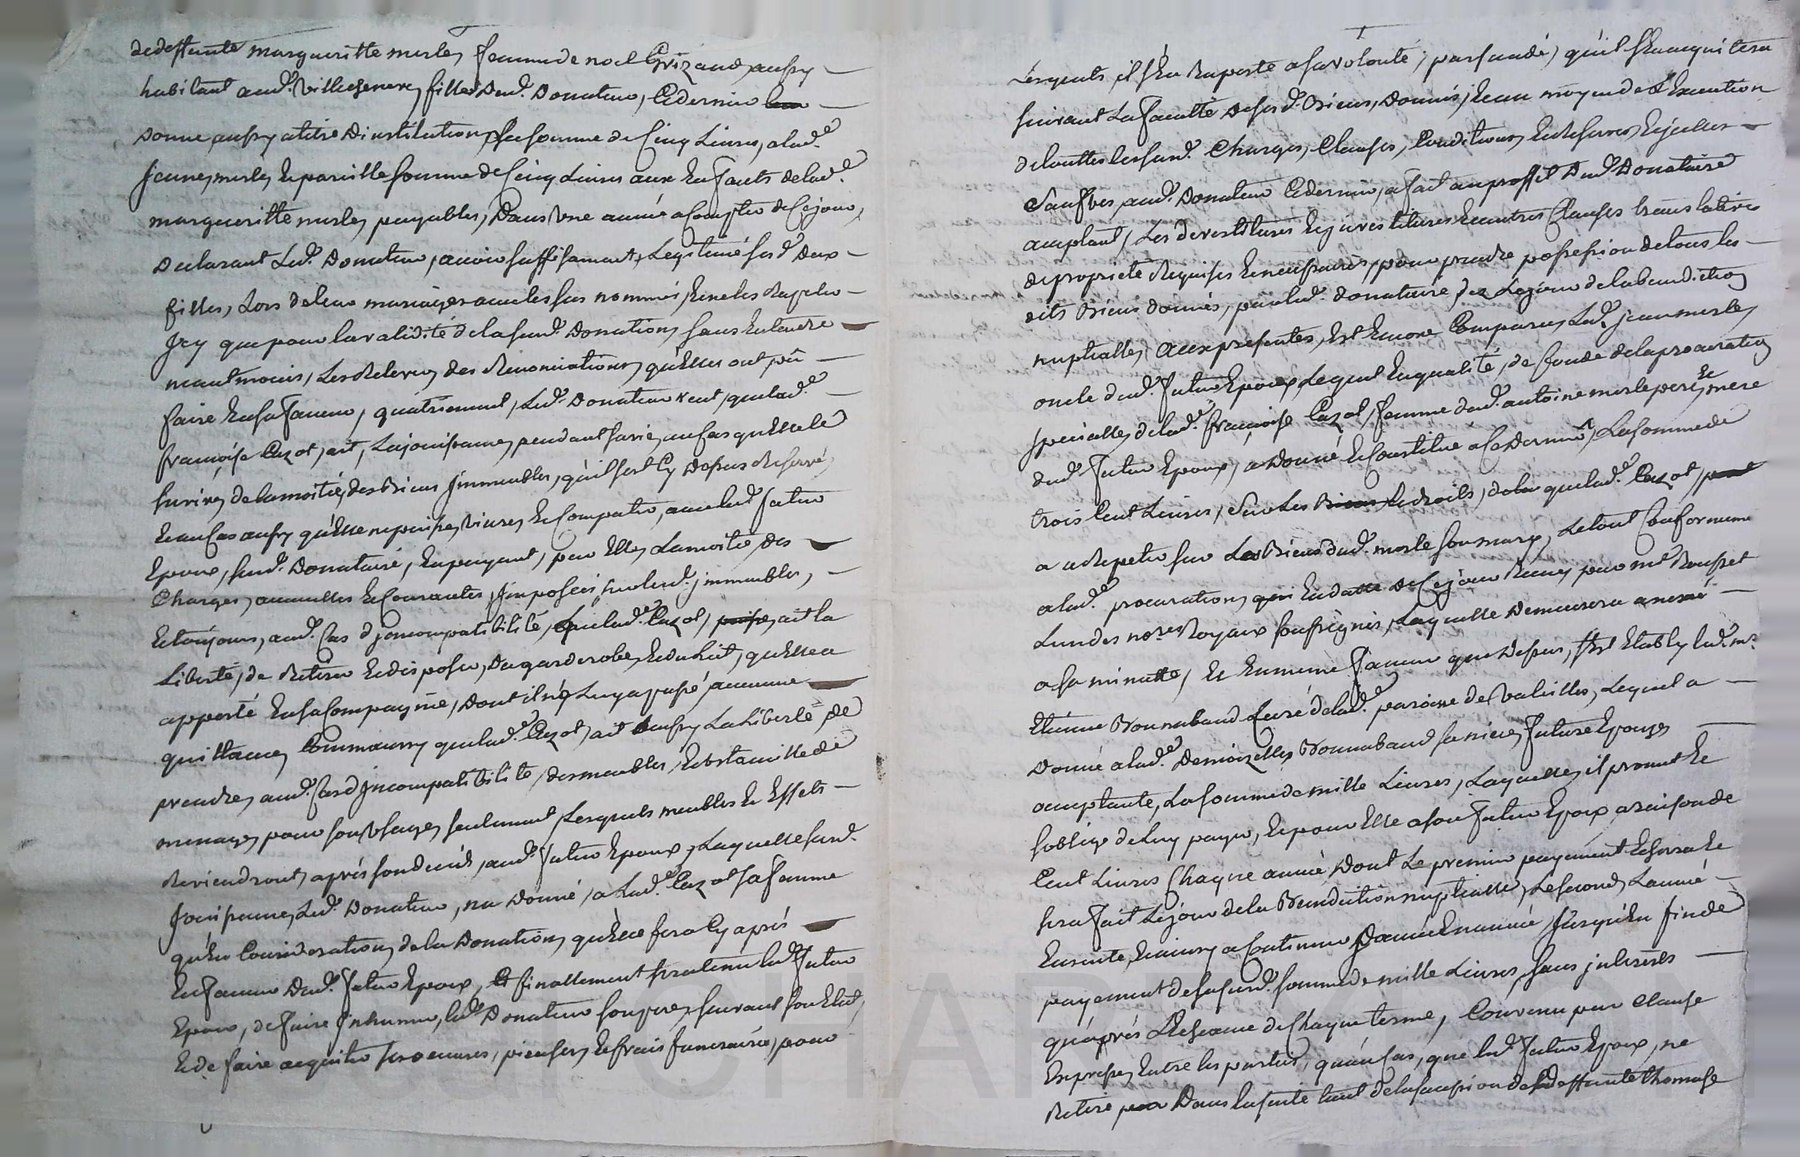 dedeffunte margueritte merle, femme de noel Grizaud aussy
habitant aud. Villesenery filles dud. Donateur, Cedernier
donne aussy atitre Dinstitution, La somme de Cinq Livres, alad.e
Jeanne merle, Epareille somme de Cinq Livres aux Enfants delad.e
margueritte merle, payables, Dans Une année acompter de Cejour,
Declarant Led. Donateur, avoir suffisament, Legitimé sesd. Deux
filles, Lors deleur mariage avec les sus nommés, Eneles Rapelle
Jcy que pour la validité delasusd. Donation, sans Entendre
neantmoins, Les Relever, des Renonciations, qu'Elles ont pû
faire Ensa faveur, quatriement, Led. Donateur veut, quelad.e
françoise Cazot, ait, La jouissance, pendant savie, aucas qu'Elle le
survive, delamoitié, des Biens Jmmeubles, qu'il sest Cy Dessus Reservé,
Eaucas aussy qu'Elle nepuisse, vivre, Ecompatir, avec led. futur
Epoux, sусd. Donataire, Enpayant, par Elle, Lamoitié, des
Charges, annuelles Ecourantes, Jmposées, surlesd. jmmeubles,
Etoujours, aud. Cas djncompatibilité, quelad.e Cazot, ait la
Liberté, de Retirer Edisposer, Dugarderobe, Edulit, qu'Elle a
apporté Ensa Compagnie, Dont il n'en Luy a passé aucune
quittance, Commaussy quelad.e Cazot, ait aussy La Liberté de
prendre, aud. Cas djncompatibilité, des meubles, Eustancille de
menage, pour son Usage, seulement, Lesquels meubles Et Effets
Reviendront, aprés son decés, aud. futur Epoux, Laquelle susd.
Jouissance, Led. Donateur, n'a Donné, a Lad.e Cazot sa femme
qu'en Consideration, de la Donation, qu'Elle fera Cy aprés
En faveur Dud. futur Epoux, Et finallement sera tenu led. futur
Epoux, de faire Jnhumer, led. Donateur son pere, suivant son Etat,
Ede faire acquiter ses oeuvres, pieuses, Esfrais funeraires, pour
Lesquels, il s'en Raporte asavolonté, persuadé, qu'il s'En acquitera
suivant La faculté Desesd. Biens, Donnés, Eau moyen de L'Execution
de touttes les susd. Charges, Clauses, Conditions, Ereserves, Ejcelles
Sauves, aud. Donateur Cedernier, a fait auproffit Dud. Donataire
acceptant, Les devestitures Ejnvestitures Eautres Clauses translatives
depropriété Requises Enecessaires, pour prendre possession detous les
dits Biens donnés, par led. donataire, dez Lejour delabenediction
nuptialle, aux presentes, Est Encore Comparu, Led. jean merle,
oncle dud. futur Epoux, Lequel Enqualité, de fondé delaprocuration
specialle, delad.e françoise Cazot, femme dud. antoine merle pere, Et mere
dud. futur Epoux, a Donné Econstitué a Cedernier, La somme de
trois Cent Livres, Sur Les droits, de la quelad.e Cazot,
a a Repeter sur Les Biens dud. merle son mary, Letout Conformement
alad.e procuration, En datte de Cejour Reçue, par m.e Rousset
Lundes no.res Royaux soussignés, Laquelle Demeurera anexée
a sa minutte, Et En meme faveur que Dessus, s'Est Etably led. m.re
Etienne Bonnabaud Curé delad.e paroisse de Valeilles, Lequel a
Donné alad.e Demoizelle, Bonnabaud sa niece, future Epouze
acceptante, La somme de mille Livres, Laquelle, il promet Et
soblige de Luy payer, Epour Elle a son futur Epoux, a raison de
Cent Livres Chaque année Dont Le premier payement Echera Et
sera fait Lejour de la Benediction nuptialle, Lesecond, L'année
Ensuite, Eainsy a Continuer D'année En année Jusqu'en fin de
payement de sasusd. somme de mille Livres, sans jnterêts
qu'aprés L'Echeance de Chaque terme, Convenu par Clause
Expresse, Entre les parties, qu'aucas, que led. futur Epoux, ne
Retire Dans Lasuite tout delasuccession deladeffunte thomase